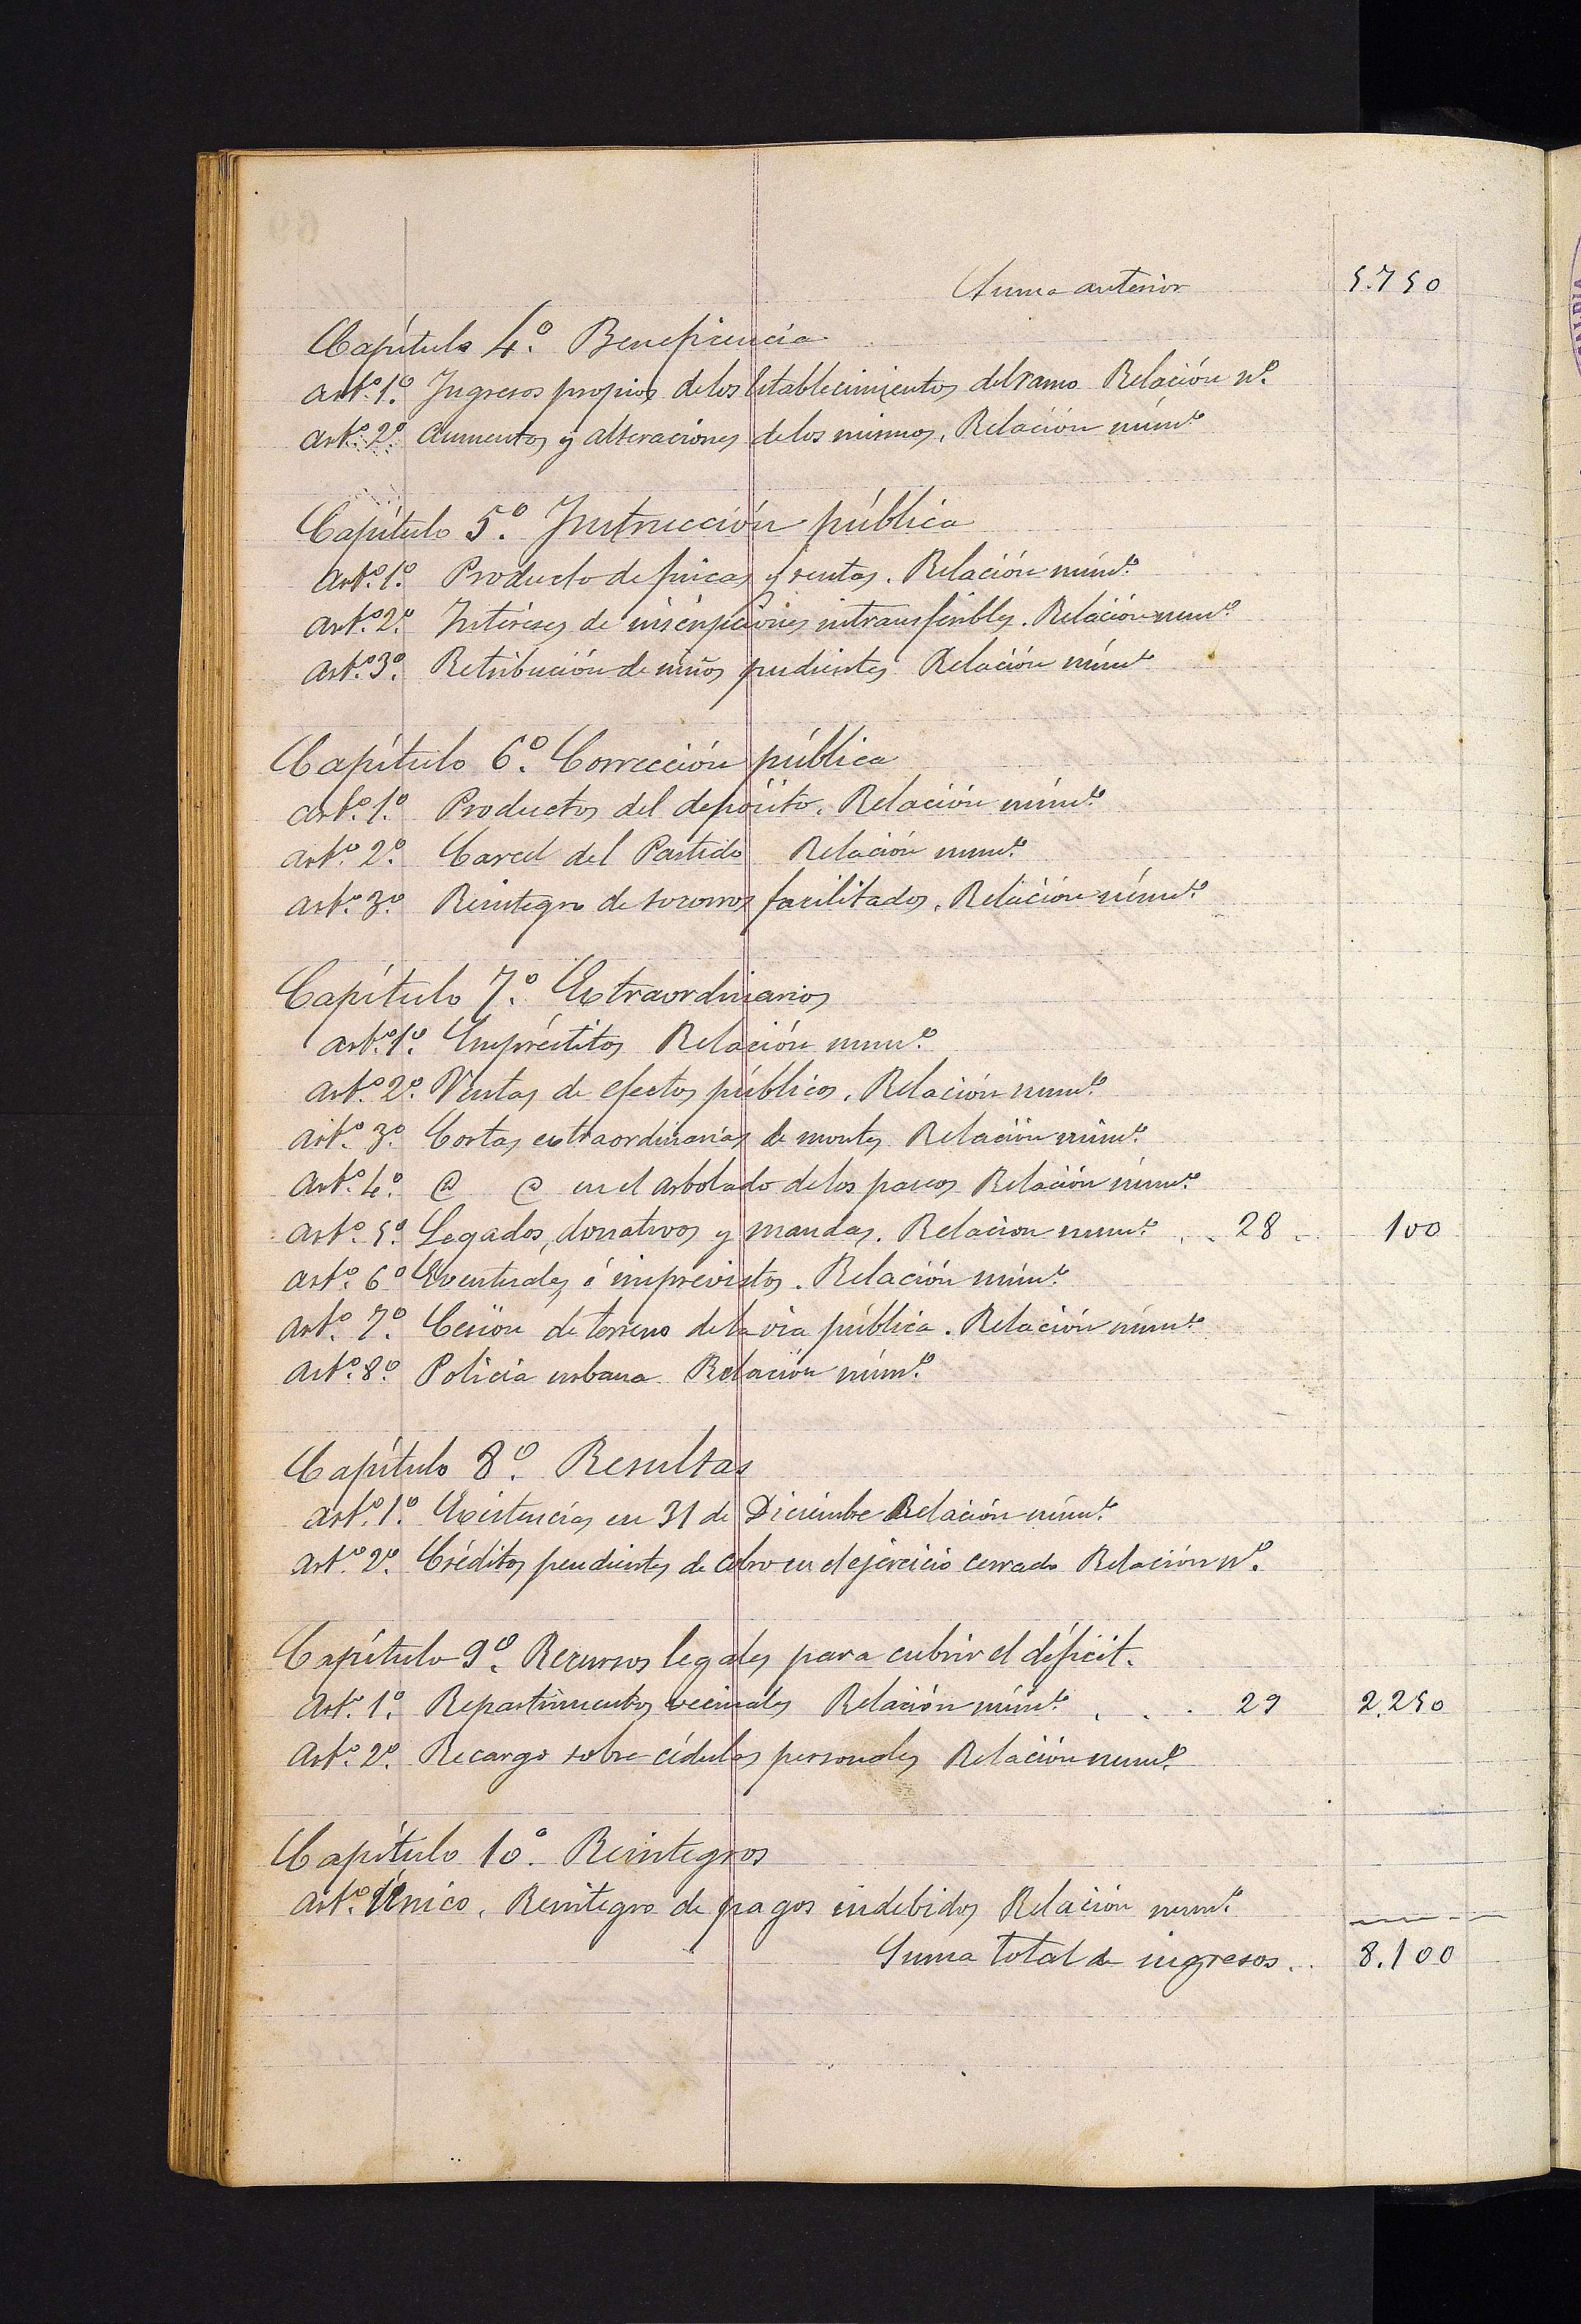 Suma anterior 5.750
Capítulo 4.º Beneficencia
Art.º 1.º Ingresos propios de los Establecimientos del ramo Relación n.º
Art.º 2.º Aumentos y alteraciones de los mismos. Relación núm.º
Capítulo 5.º Instrucción pública
Art.º 1.º Producto de fincas y rentas. Relación núm.º
Art.º 2.º Intereses de inscripciones intransferibles. Relación num.º
Art.º 3.º Retribución de niños pudientes Relación núm.º
Capítulo 6.º Corrección pública
Art.º 1.º Productos del depósito. Relación núm.º
Art.º 2.º Carcel del Partido Relación num.º
Art.º 3.º Reintegro de socorros facilitados. Relación núm.º
Capítulo 7.º Extraordinarios
Art.º 1.º Empréstitos Relación num.º
Art.º 2.º Ventas de efectos públicos. Relación num.º
Art.º 3.º Cortas extraordinarias de montes Relación núm.º
Art.º 4.º @ @ en el arbolado de los paseos Relación núm.º
Art.º 5.º Legados, donativos y mandas. Relacion num.º . . 28 .. 100
Art.º 6.º Eventuales é imprevistos. Relación núm.º
Art.º 7.º Cesión de terreno de la via pública. Relación núm.º
Art.º 8.º Policía urbana Relación núm.º
Capítulo 8.º Resultas
Art.º 1.º Existencias en 31 de Diciembre Relación núm.º
Art.º 2.º Créditos pendientes de cobro en el ejercicio cerrado Relación n.º
Capítulo 9.º Recursos legales para cubrir el déficit.
Art.º 1.º Repartimientos vecinales Relación núm.º . . . 29 2.250
Art.º 2.º Recargo sobre cédulas personales Relación num.º
Capítulo 10.º Reintegros
Art.º Único. Reintegro de pagos indebidos Relación num.º
Suma total de ingresos .. 8.100